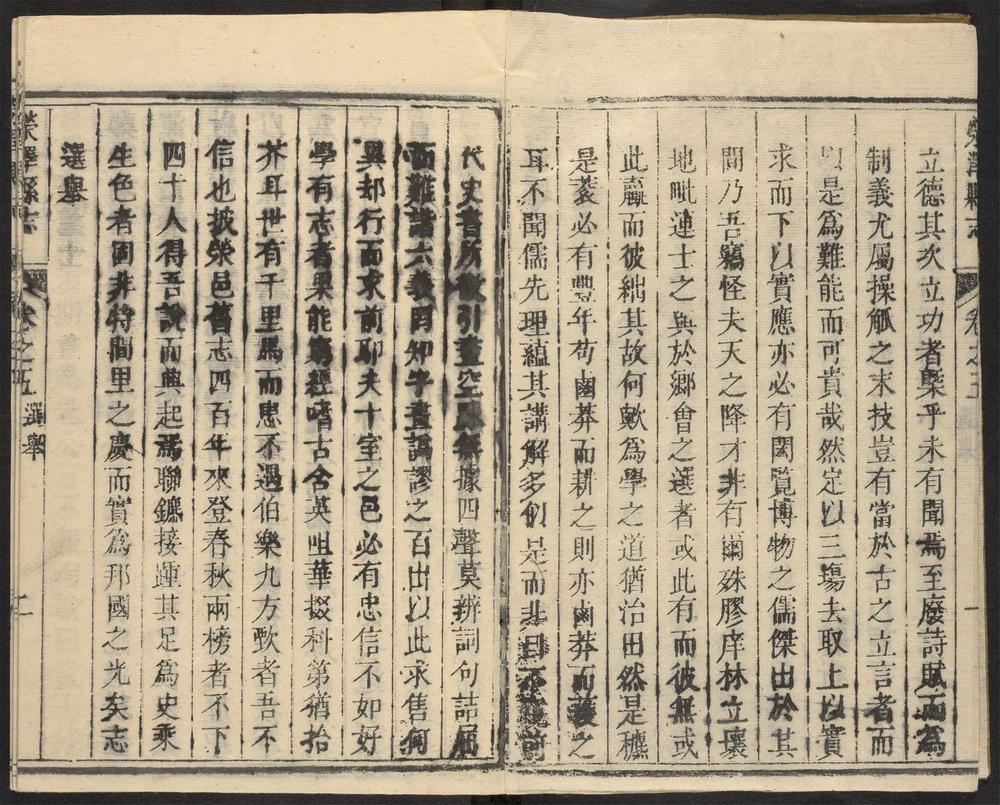 滎澤縣志
卷之五
一
立德其次立功者槩乎未有聞焉至廢詩賦而爲
制義尤屬操觚之末技豈有當於古之立言者而
以是爲難能而可貴哉然定以三塲去取上以實
求而下以實應亦必有閎覽博物之儒傑出於其
間乃吾竊怪夫天之降才非有爾殊膠庠林立壤
地毗連士之與於鄉會之選者或此有而彼無或
此贏而彼絀其故何歟爲學之道猶治田然是穮
是蓘必有豐年苟鹵莽而耕之則亦鹵莽而穫之
耳不聞儒先理蘊其講解多似是而非目不覩前
代史書所徵引蹈空無據四聲莫辨詞句詰屈
而難諸六義罔知字畫譌謬之百出以此求售何
異却行而求前耶夫十室之邑必有忠信不如好
學有志者果能窮經嗜古含英咀華掇科第猶拾
芥耳世有千里馬而患不遇伯樂九方歅者吾不
信也披滎邑舊志四百年來登春秋兩榜者不下
四十人得吾說而興起焉聯鑣接踵其足爲史乘
生色者固非特閭里之慶而實爲邦國之光矣志
選舉
滎澤縣志
卷之五
選舉
二